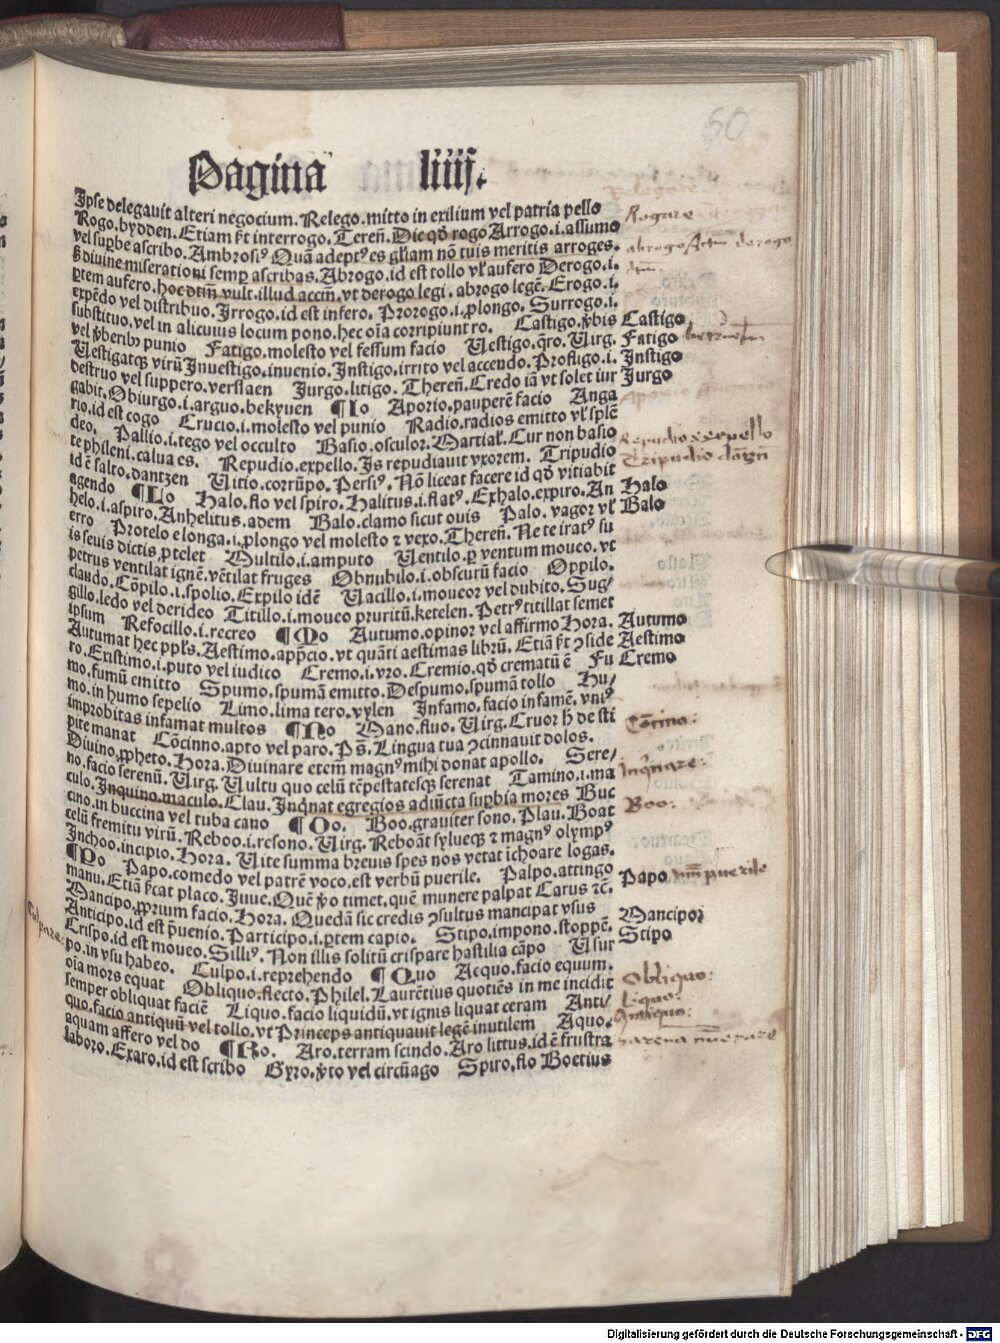 60
Pagina liiij.
Ipse delegauit alteri negocium. Relego. mitto in exilium vel patria pello
Rogo. bydden. Etiam ẜt interrogo. Tereñ. Dic qđ rogo Arrogo. i. assumo
vel supbe ascribo. Ambrosiꝰ Quā adeptꝰ es gliam nō tuis meritis arroges.
ẜ diuine miserationi semp ascribas. Abrogo. id est tollo vł aufero Derogo. i.
ptem aufero. hoc dtīm vult. illud accīn. vt derogo legi. abrogo legē. Erogo. i.
expēdo vel distribuo. Irrogo. id est infero. Prorogo. i. plongo. Surrogo. i.
substituo. vel in alicuius locum pono. hec oīa corripiunt ro. Castigo. ꝟbis Castigo
vel ꝟberibꝰ punio Fatigo. molesto vel fessum facio Uestigo. q̄ro. Uirg. Fatigo
Uestigatqꝫ virū Inuestigo. inuenio. Instigo. irrito vel accendo. Profligo. i. Instigo
destruo vel suppero. verslaen Jurgo. litigo. Thereñ. Credo iā vt solet iur Jurgo
gabit. Obiurgo. i. arguo. bekyuen ¶ Io Aporio. pauperē facio Anga
rio. id est cogo Crucio. i. molesto vel punio Radio. radios emitto vł splē
deo. Pallio. i. tego vel occulto Basio. osculor. Martiał. Cur non basio
te phileni. calua es. Repudio. expello. Is repudiauit vxorem. Tripudio
id ē salto. dantzen Uitio. corrūpo. Persiꝰ. Nō liceat facere id qđ vitiabit
agendo ¶ Lo Halo. flo vel spiro. Halitus. i. flatꝰ. Exhalo. expiro. An Halo
helo. i. aspiro. Anhelitus. adem Balo. clamo sicut ouis Palo. vagor vł Balo
erro Protelo elonga. i. plongo vel molesto ⁊ vexo. Thereñ. Ne te iratꝰ su
is seuis dictis ptelet Multilo. i. amputo Uentilo. p ventum moueo. vt
petrus ventilat ignē. vētilat fruges Obnubilo. i. obscurū facio Oppilo.
claudo. Cōpilo. i. spolio. Expilo idē Uacillo. i. moueor vel dubito. Sug/
gillo. ledo vel derideo Titillo. i. moueo pruritū. ketelen. Petrꝰ titillat semet
ipsum Refocillo. i. recreo ¶ Mo Autumo. opinor vel affirmo Hora. Autumo
Autumat hec ppłs. Aestimo. appcio. vt quāti aestimas librū. Etiā ẜt ↄside Aestimo
ro. Existimo. i. puto vel iudico Cremo. i. vro. Cremio. qđ crematū ē Fu Cremo
mo. fumū emitto Spumo. spumā emitto. Despumo. spumā tollo Hu/
mo. in humo sepelio Limo. lima tero. vylen Infamo. facio infamē. vniꝰ
improbitas infamat multos ¶ No Mano. fluo. Uirg. Cruor ħ de sti
pite manat Cōcinno. apto vel paro. Ps̄. Lingua tua ↄcinnauit dolos.
Diuino. ꝓpheto. Hora. Diuinare etem magnꝰ mihi donat apollo. Sere/
no. facio serenū. Uirg. Uultu quo celū tēpestatesqꝫ serenat Tamino. i. ma
culo. Inquino. maculo. Clau. Inq̄nat egregios adiūcta supbia mores Buc
cino. in buccina vel tuba cano ¶ Oo. Boo. grauiter sono. Plau. Boat
celū fremitu virū. Reboo. i. resono. Uirg. Reboāt sylueqꝫ ⁊ magnꝰ olympꝰ
Inchoo. incipio. Hora. Uite summa breuis spes nos vetat īchoare logas.
¶ Po Papo. comedo vel patrē voco. est verbū puerile. Palpo. attingo
manu. Etiā ẜcat placo. Juue. Quē ꝓo timet. quē munere palpat Carus ⁊c̄. Papo
Mancipo. ꝓprium facio. Hora. Quedā sic credis ↄsultus mancipat vsus
Anticipo. id est puenio. Participo. i. ptem capio. Stipo. impono. stoppē. Mancipor
Crispo. id est moueo. Silliꝰ. Non illis solitū crispare hastilia cāpo Usur Stipo
po. in vsu habeo. Culpo. i. reprehendo ¶ Quo Aequo. facio equum.
oīa mors equat Obliquo. flecto. Philel. Laurētius quotiēs in me incidit
semper obliquat faciē Liquo. facio liquidū. vt ignis liquat ceram Anti/
quo. facio antiquū vel tollo. vt Princeps antiquauit legē inutilem Aquo.
aquam affero vel do ¶ Ro. Aro. terram scindo. Aro littus. id ē frustra
laboro. Exaro. id est scribo Gyro. ꝟto vel circūago Spiro. flo Boetius
Relegare
Rogare
Repudio expello
Tripudio
Cōcino:
Inq̄nare:
Boo:
Culpare:
Obliquo:
Liquo:
Antiquo:
Digitalisierung gefördert durch die Deutsche Forschungsgemeinschaft - DFG